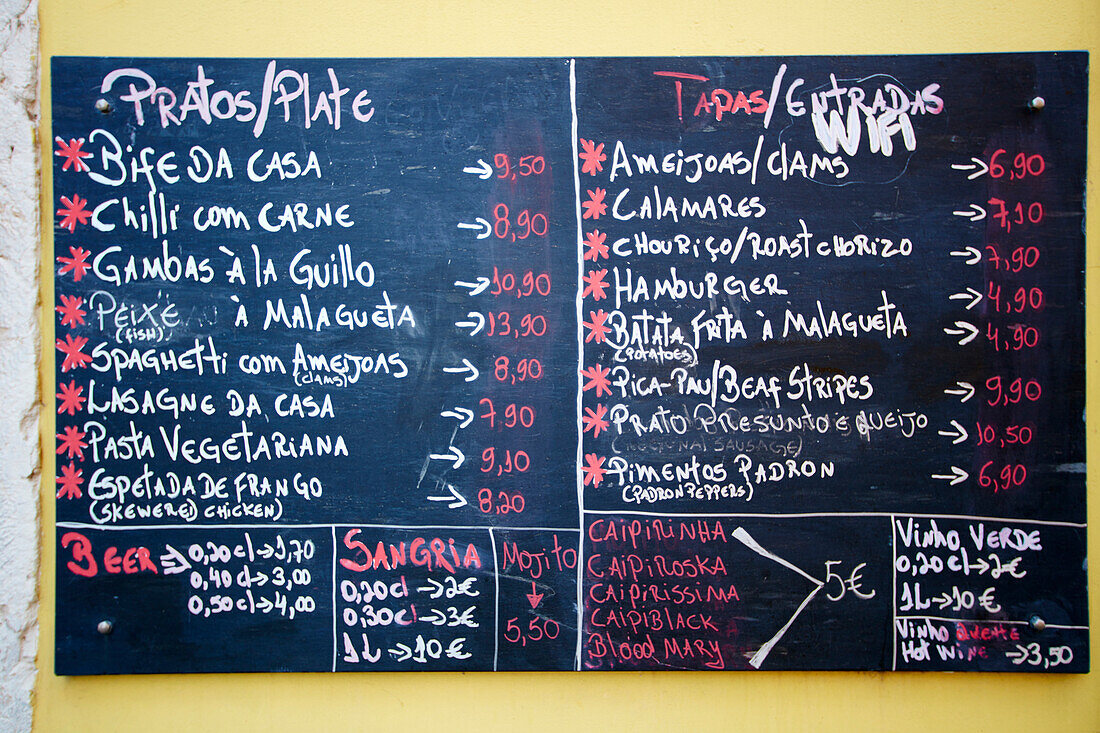 PRATOS/PLATE
* BIFE DA CASA → 9,50
* Chilli com CARNE → 8,90
* GAMBAS À la Guillo → 10,90
* PEIXE À MALAGUETA → 13,90
(FISH)
* SPAGHETTI com AMEIJOAS → 8,90
(CLAMS)
* LASAGNE DA CASA → 7,90
* PASTA VEGETARIANA → 9,10
* ESPETADA DE FRANGO → 8,20
(SKEWERED CHICKEN)
TAPAS/ENTRADAS
WIFI
* AMEIJOAS/CLAMS → 6,90
* CALAMARES → 7,10
* CHOURIÇO/ROAST CHORIZO → 7,90
* HAMBURGER → 4,90
* BATATA FRITA À MALAGUETA → 4,90
(POTATOES)
* PICA-PAU/BEAF STRIPES → 9,90
* PRATO PRESUNTO E QUEIJO → 10,50
(REGIONAL SAUSAGE)
* PIMENTOS PADRON → 6,90
(PADRON PEPPERS)
BEER ⇒ 0,20 cl → 1,70
0,40 cl → 3,00
0,50 cl → 4,00
SANGRIA
0,20 cl → 2€
0,30 cl → 3€
1L → 10€
MOJITO
↓
5,50
CAIPIRINHA
CAIPIROSKA
CAIPIRISSIMA
CAIPIBLACK
BLOOD MARY
5€
VINHO VERDE
0,20 cl → 2€
1L → 10€
VINHO QUENTE
HOT WINE → 3,50